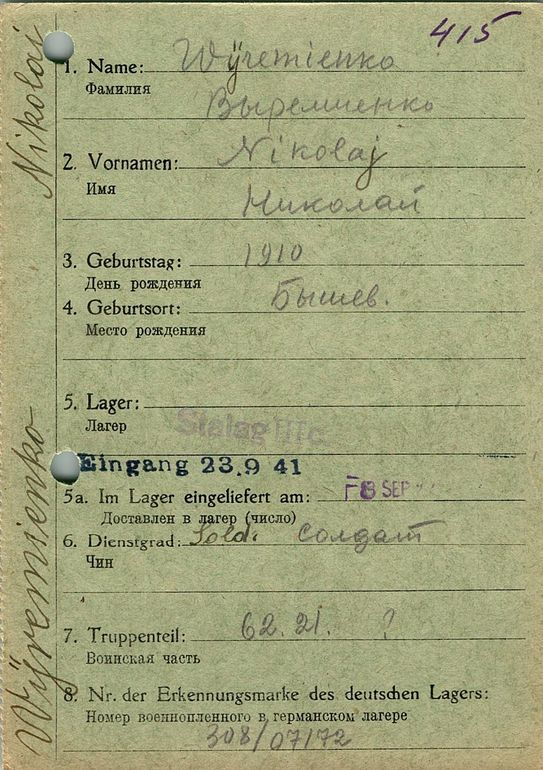 415
1. Name: Wÿremienko
Фамилия
Выремиенко
2. Vornamen: Nikolaj
Имя
Николай
3. Geburtstag: 1910
День рождения
4. Geburtsort: Бышев.
Место рождения
5. Lager:
Лагер
Stalag IIIc
Eingang 23.9 41
5a. Im Lager eingeliefert am: SEP
Доставлен в лагер (число)
6. Dienstgrad: Sold. солдат
Чин
7. Truppenteil: 62.21. ?
Воинская часть
8. Nr. der Erkennungsmarke des deutschen Lagers:
Номер военнопленного в германском лагере
308/07172
Wÿremienko Nikolaj